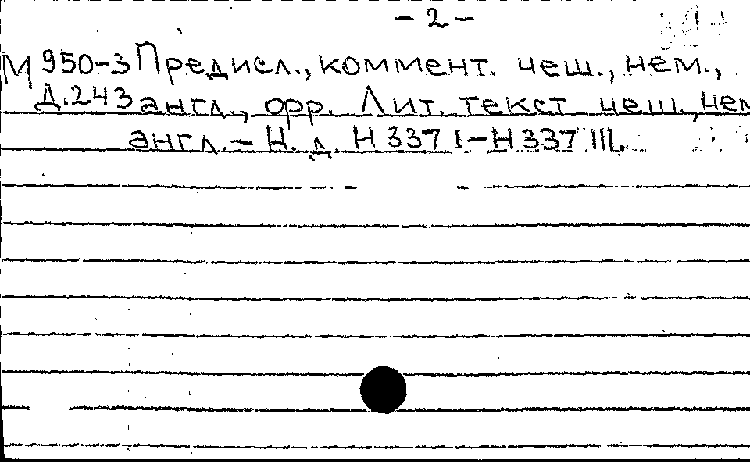 - 2 -
М 950-3 Предисл., коммент. чеш., нем.,
Д.243 англ., орр. Лит. текст чеш., нем
англ. - Н. д. Н 337 I - Н 337 III.